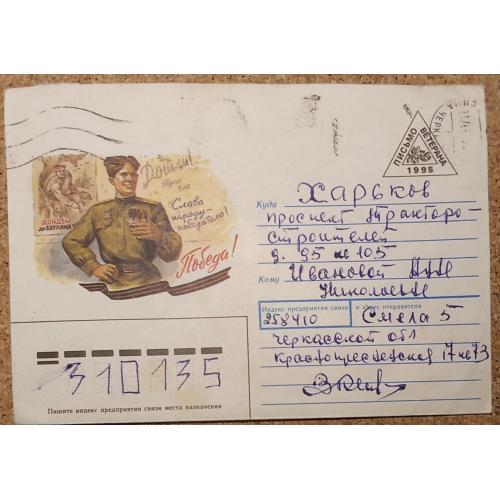 Дойдём
до Берлина!
Дошли!
Слава
народу-
победителю!
Победа!
ПИСЬМО
ВЕТЕРАНА
1995
Куда
Харьков
проспект Тракторо
строителей
д. 95 кв 105
Кому
Ивановой
Николаевне
Индекс предприятия связи и адрес отправителя
258410
Смела 5
Черкасской обл
17 кв 73
310135
Пишите индекс предприятия связи места назначения